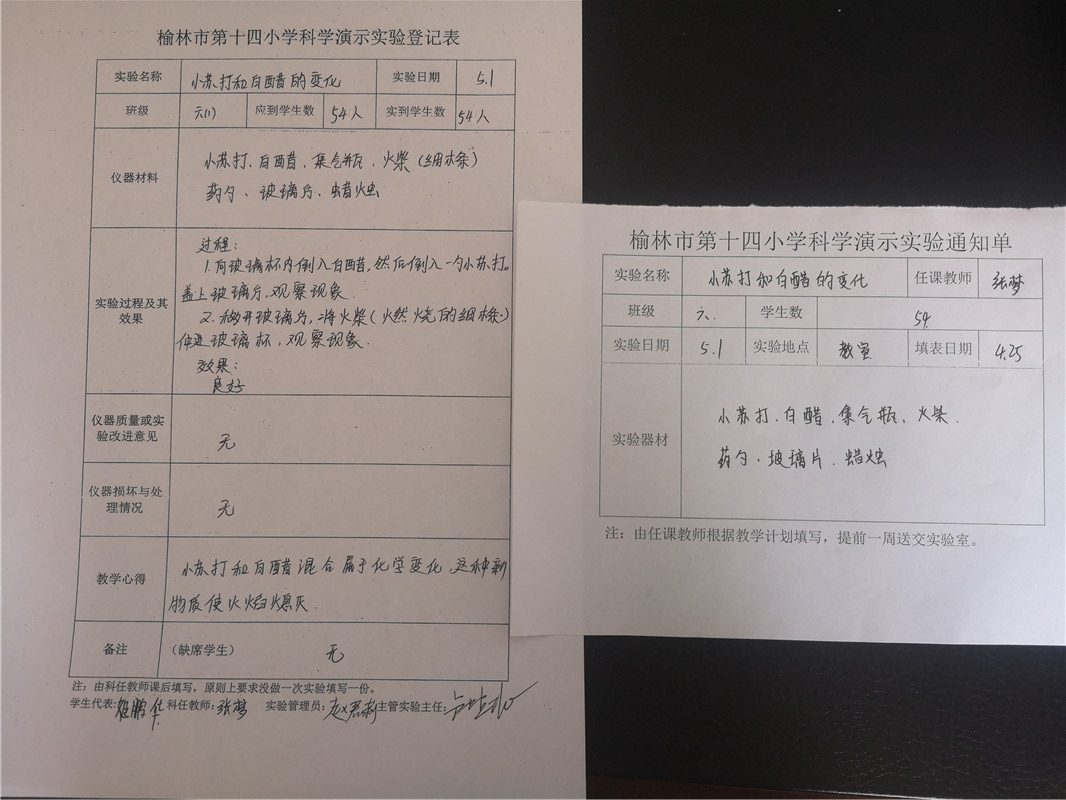 榆林市第十四小学科学演示实验登记表
实验名称 小苏打和白醋的变化 实验日期 5.1
班级 六(1) 应到学生数 54人 实到学生数 54人
仪器材料
小苏打、白醋、集气瓶、火柴(细木条)
药勺、玻璃片、蜡烛
实验过程及其效果
过程:
1.向玻璃杯内倒入白醋,然后倒入一勺小苏打。
盖上玻璃片,观察现象.
2.移开玻璃片,将火柴(火燃烧的细木条)
伸进玻璃杯,观察现象.
效果:
良好
仪器质量或实验改进意见 无
仪器损坏与处理情况 无
教学心得
小苏打和白醋混合属于化学变化,这种新
物质使火焰熄灭.
备注 (缺席学生) 无
注:由科任教师课后填写,原则上要求没做一次实验填写一份。
学生代表: 科任教师:张梦 实验管理员: 主管实验主任:
榆林市第十四小学科学演示实验通知单
实验名称 小苏打和白醋的变化 任课教师 张梦
班级 六. 学生数 54
实验日期 5.1 实验地点 教室 填表日期 4.25
实验器材
小苏打、白醋、集气瓶、火柴.
药勺、玻璃片、蜡烛
注:由任课教师根据教学计划填写,提前一周送交实验室。